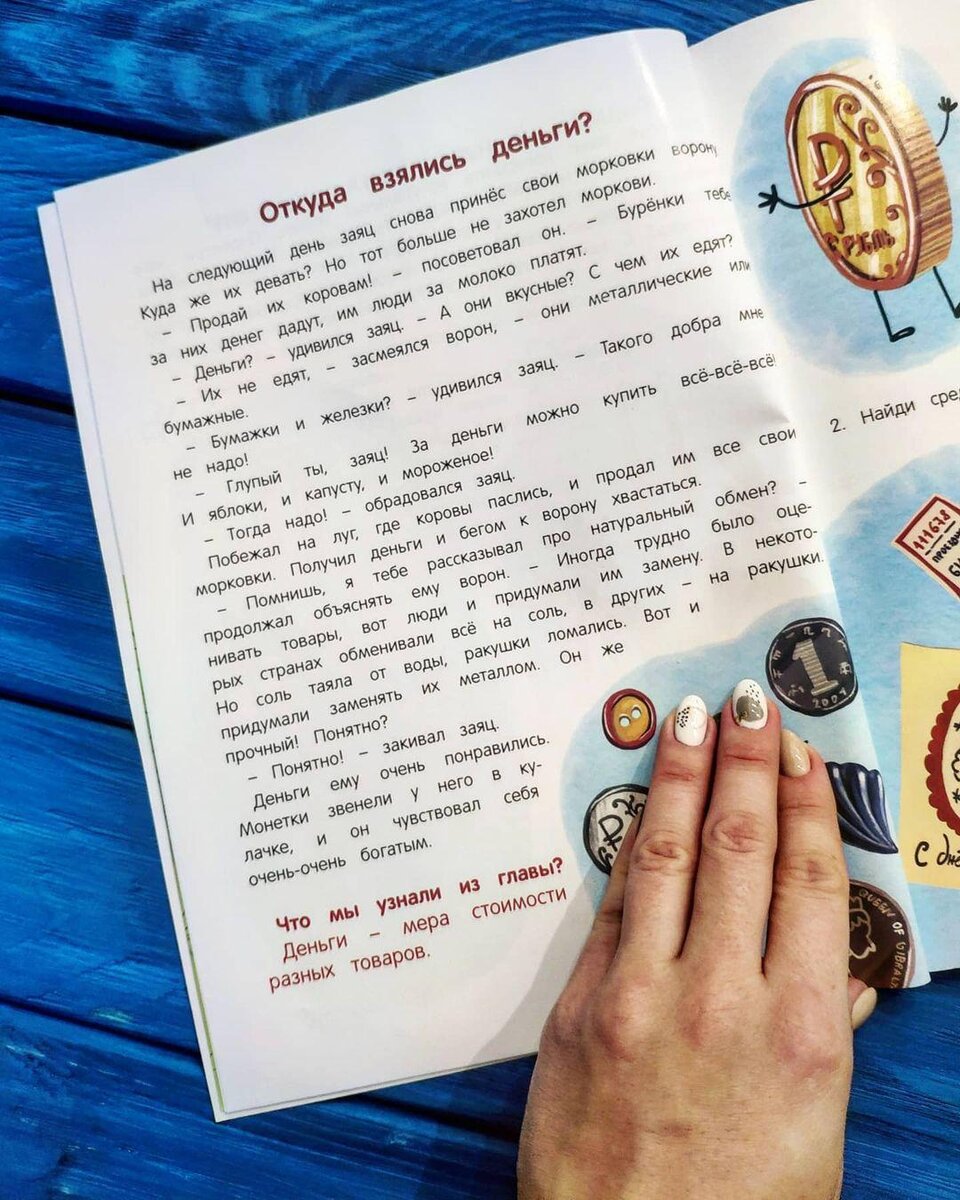 Откуда взялись деньги?
На следующий день заяц снова принёс свои морковки ворону.
Куда же их девать? Но тот больше не захотел моркови.
– Продай их коровам! – посоветовал он. – Бурёнки тебе
за них денег дадут, им люди за молоко платят.
– Деньги? – удивился заяц. – А они вкусные? С чем их едят?
– Их не едят, – засмеялся ворон, – они металлические или
бумажные.
– Бумажки и железки? – удивился заяц. – Такого добра мне
не надо!
– Глупый ты, заяц! За деньги можно купить всё-всё-всё!
И яблоки, и капусту, и мороженое!
– Тогда надо! – обрадовался заяц.
Побежал на луг, где коровы паслись, и продал им все свои
морковки. Получил деньги и бегом к ворону хвастаться.
– Помнишь, я тебе рассказывал про натуральный обмен? –
продолжал объяснять ему ворон. – Иногда трудно было оце-
нивать товары, вот люди и придумали им замену. В некото-
рых странах обменивали всё на соль, в других – на ракушки.
Но соль таяла от воды, ракушки ломались. Вот и
придумали заменять их металлом. Он же
прочный! Понятно?
– Понятно! – закивал заяц.
Деньги ему очень понравились.
Монетки звенели у него в ку-
лачке, и он чувствовал себя
очень-очень богатым.
Что мы узнали из главы?
Деньги – мера стоимости
разных товаров.
РУБЛЬ
2. Найди
111678
1
2001
С
QUEEN OF GIBRAL